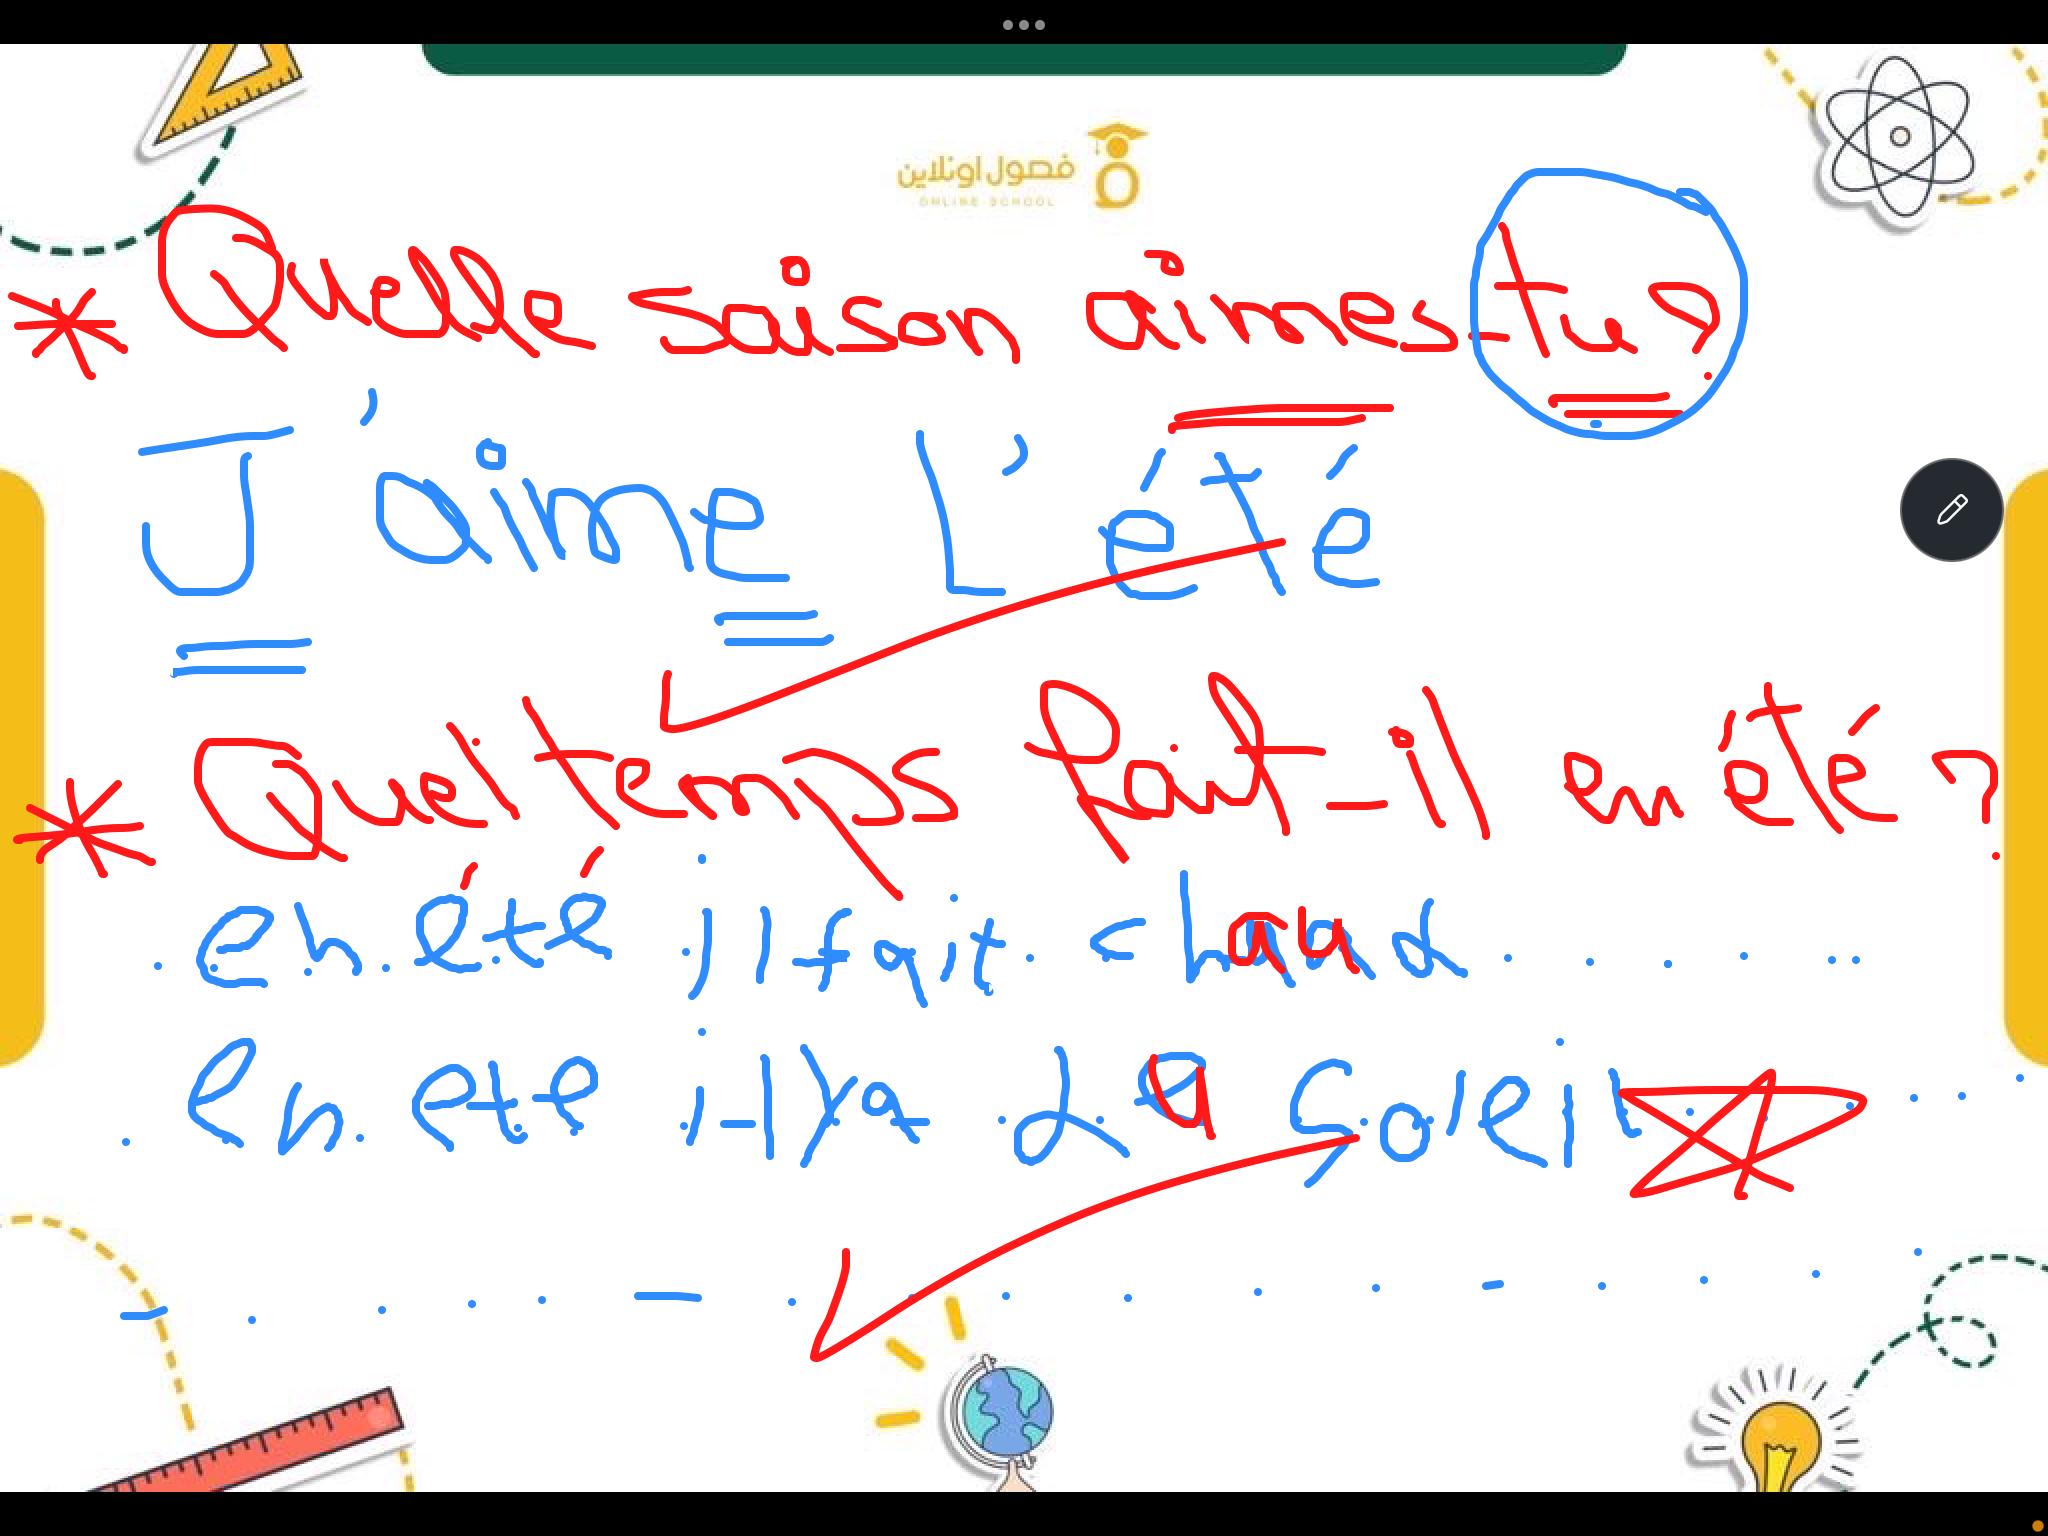 فصول اونلاين
ONLINE SCHOOL
* Quelle saison aimes-tu?
J'aime L'été
* Quel temps fait-il en été?
en été il fait chaud
En ete il ya du Soleil